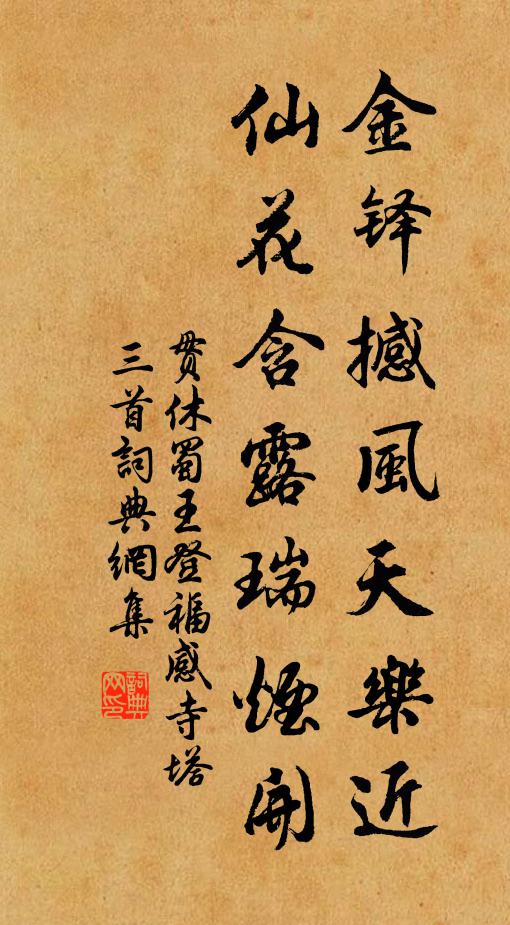 金铎撼風天樂近
仙花含露瑞煙開
貫休蜀王登福感寺塔
三首詞典網集
詞典
网印